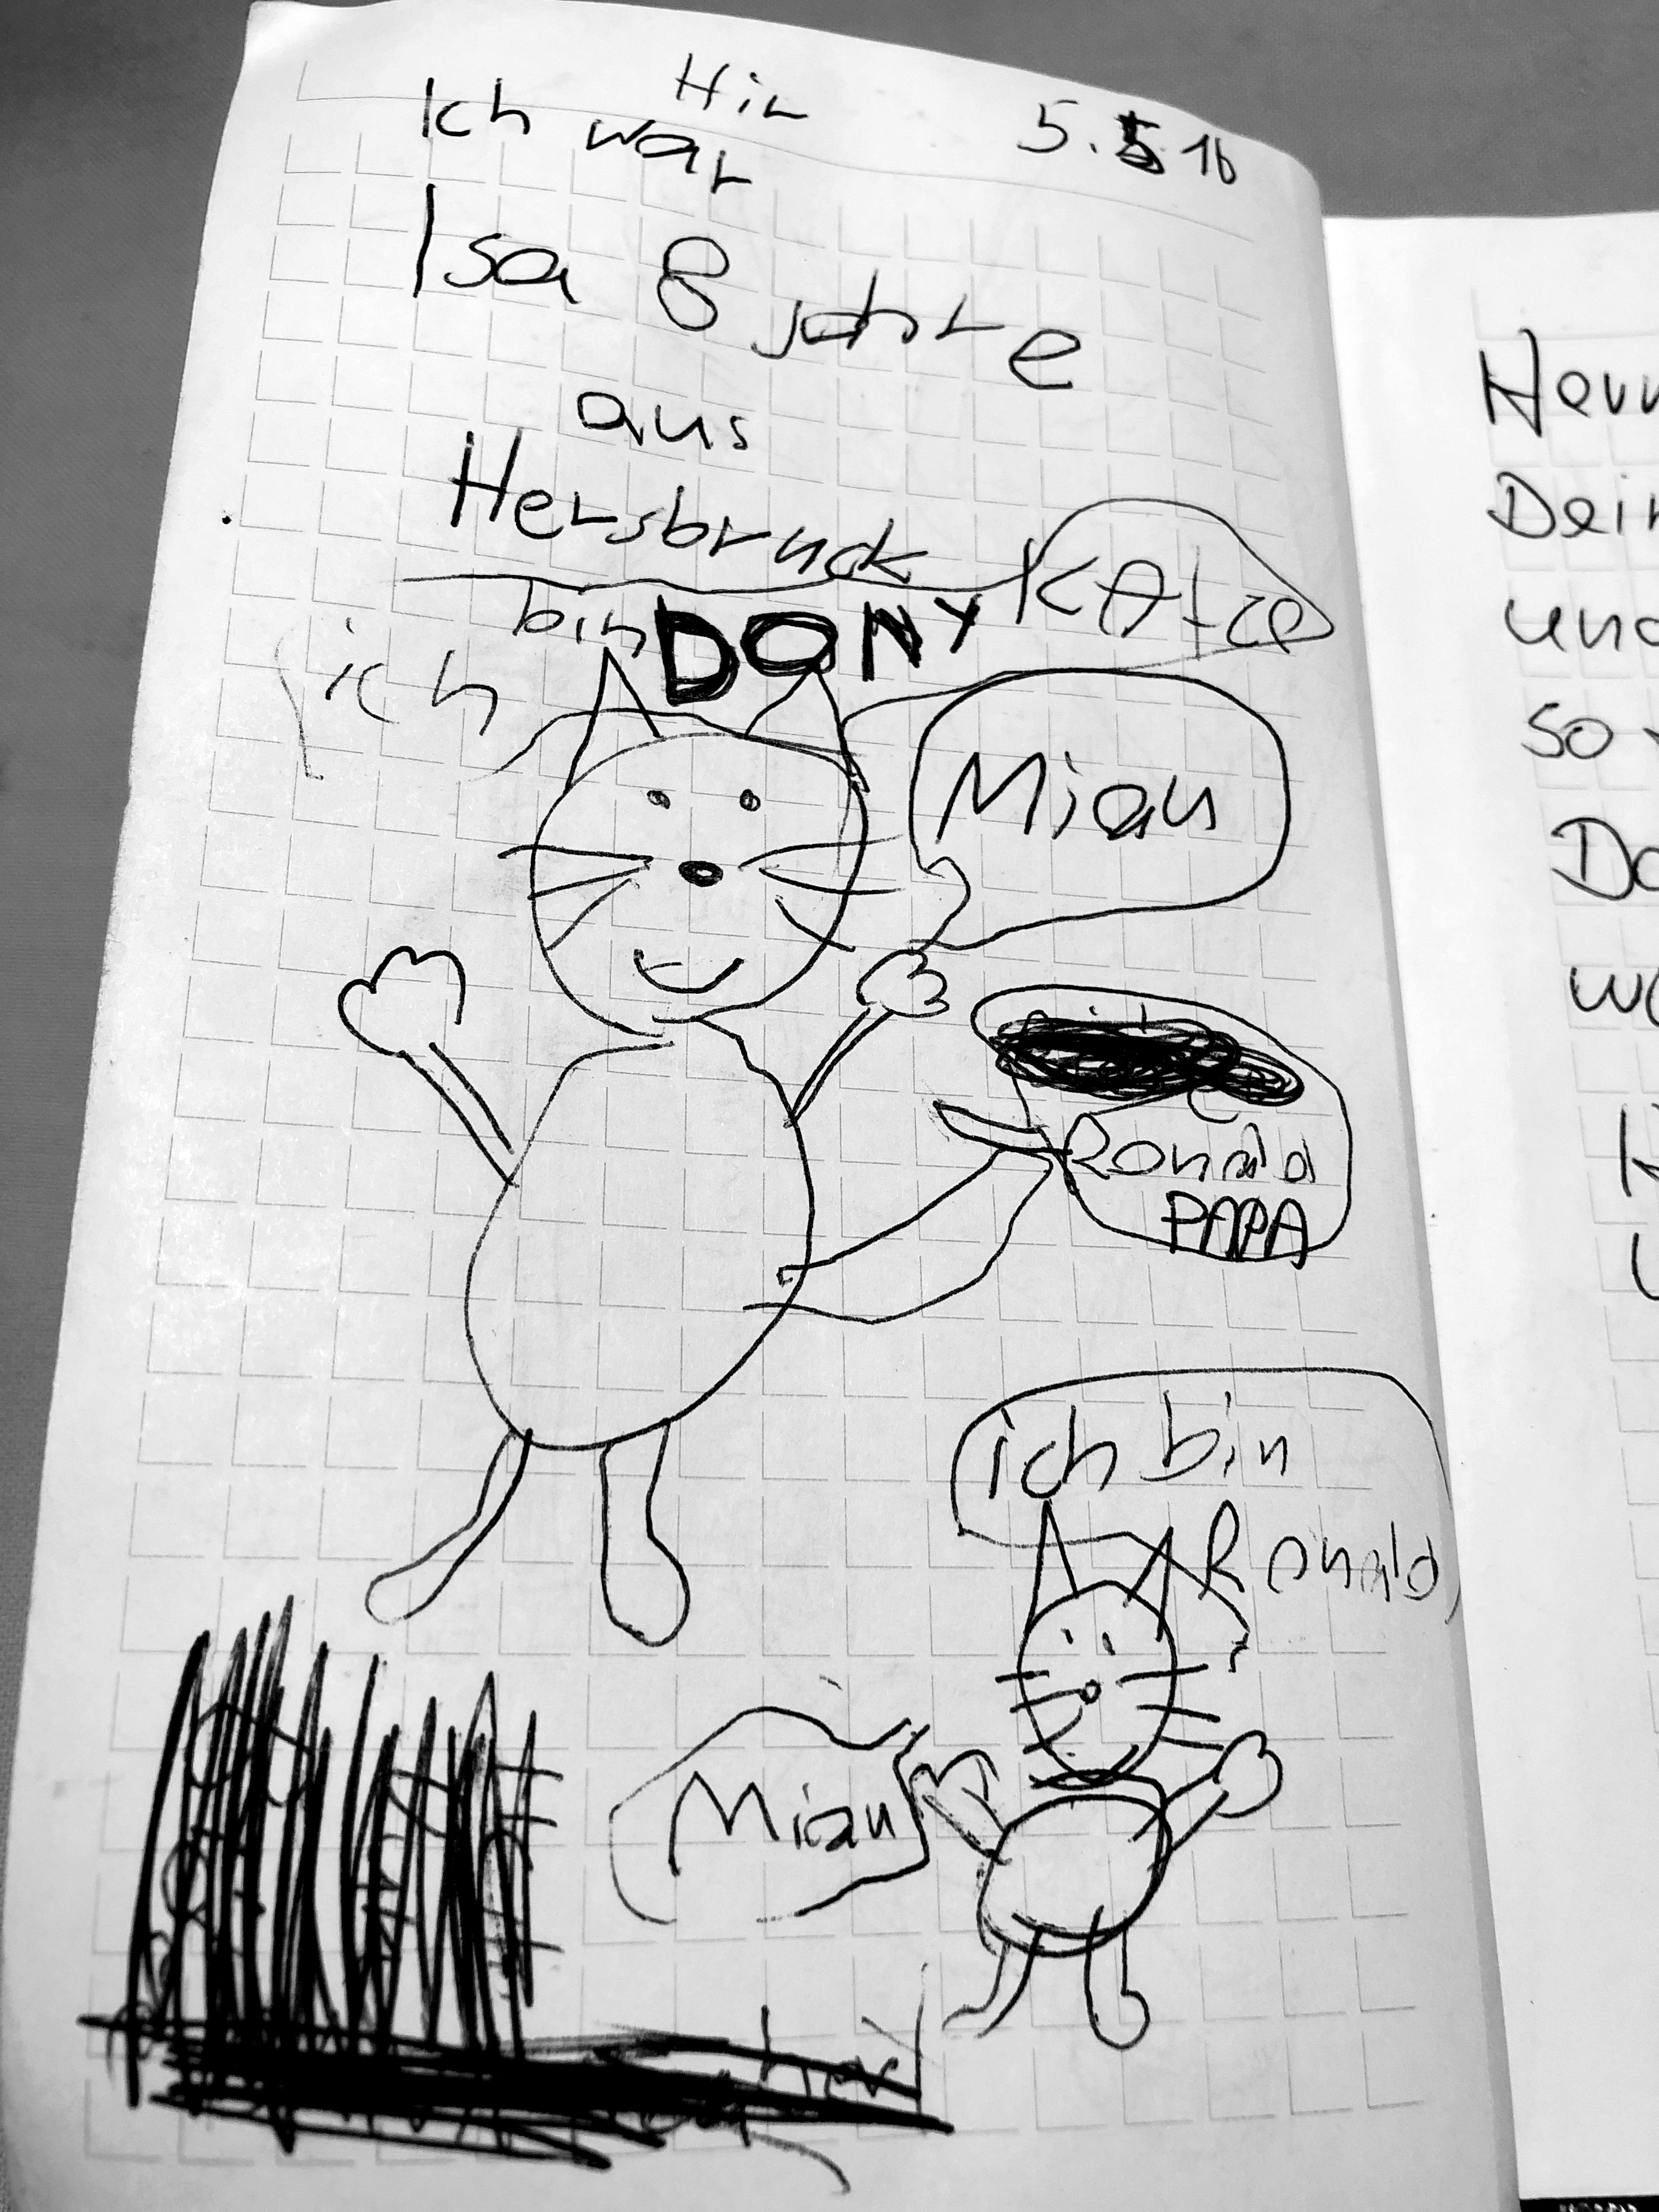 Hir
Ich war
5.5 16
Isa 8 jahre
aus
Hersbruck
ich bin DONY KAtze
Miau
Ronald
PAPA
ich bin
Ronald
Miau
Dein
und
so